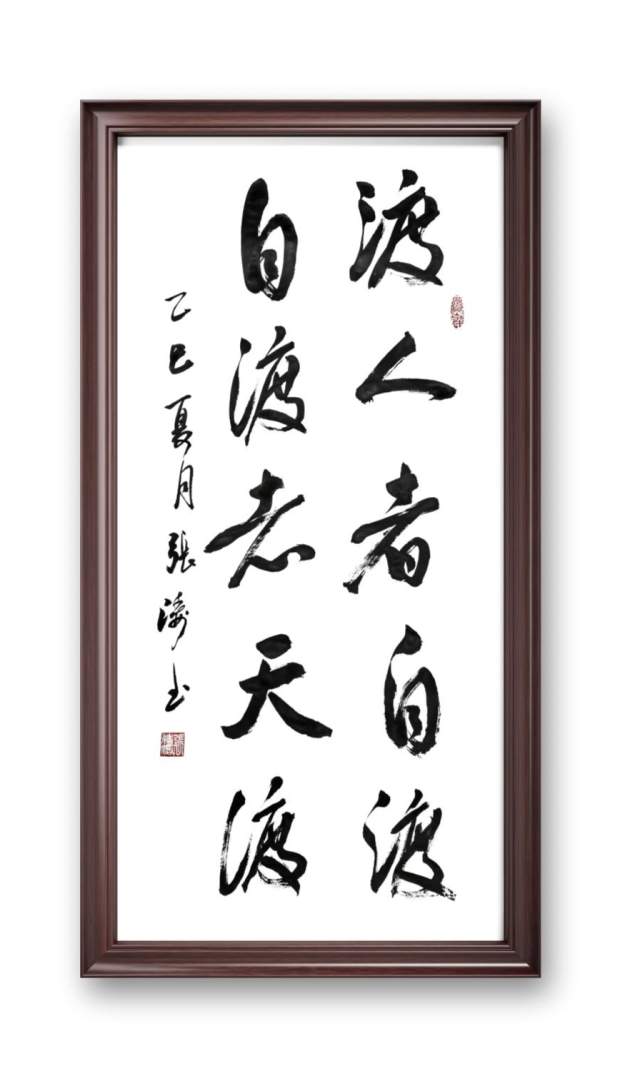 渡人者自渡
自渡者天渡
乙巳夏月張 书